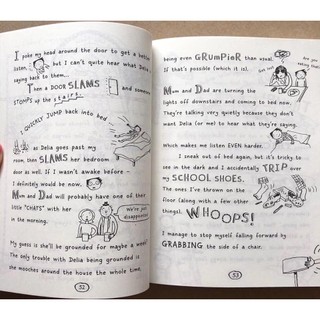 I poke my head around the door to get a better
listen, but I can't quite hear what Delia
saying back to them...
Then a DOOR SLAMS and someone
STOMPS up the stairs.
I QUICKLY JUMP back into bed
as Delia goes past my
room, then SLAMS her bedroom
door as well. If I wasn't awake before –
I definitely would be now.
Mum and Dad will probably have one of their
little "CHATS" with her
in the morning.
We're just
disappointed
My guess is she'll be grounded for maybe a week?
The only trouble with Delia being grounded is
she mooches around the house the whole time,
52
being even GRUMPIER than usual.
If that's possible (which it is).
Are you
eating that?
Mum and Dad are turning the
lights off downstairs and coming to bed now.
They're talking very quietly because they don't
want Delia (or me) to hear what they're saying.
Which makes me listen EVEN harder.
I sneak out of bed again, but it's tricky to
see in the dark and I accidentally TRIP over
my SCHOOL SHOES.
The ones I've thrown on the
floor (along with a few other
things).
WHOOPS!
I manage to stop myself falling forward by
GRABBING the side of a chair.
53